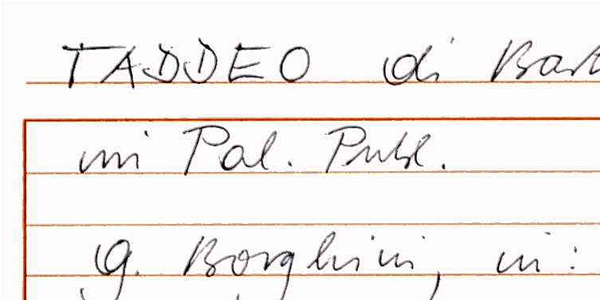 TADDEO di Bart
im Pal. Publ.
G. Borghini, in: